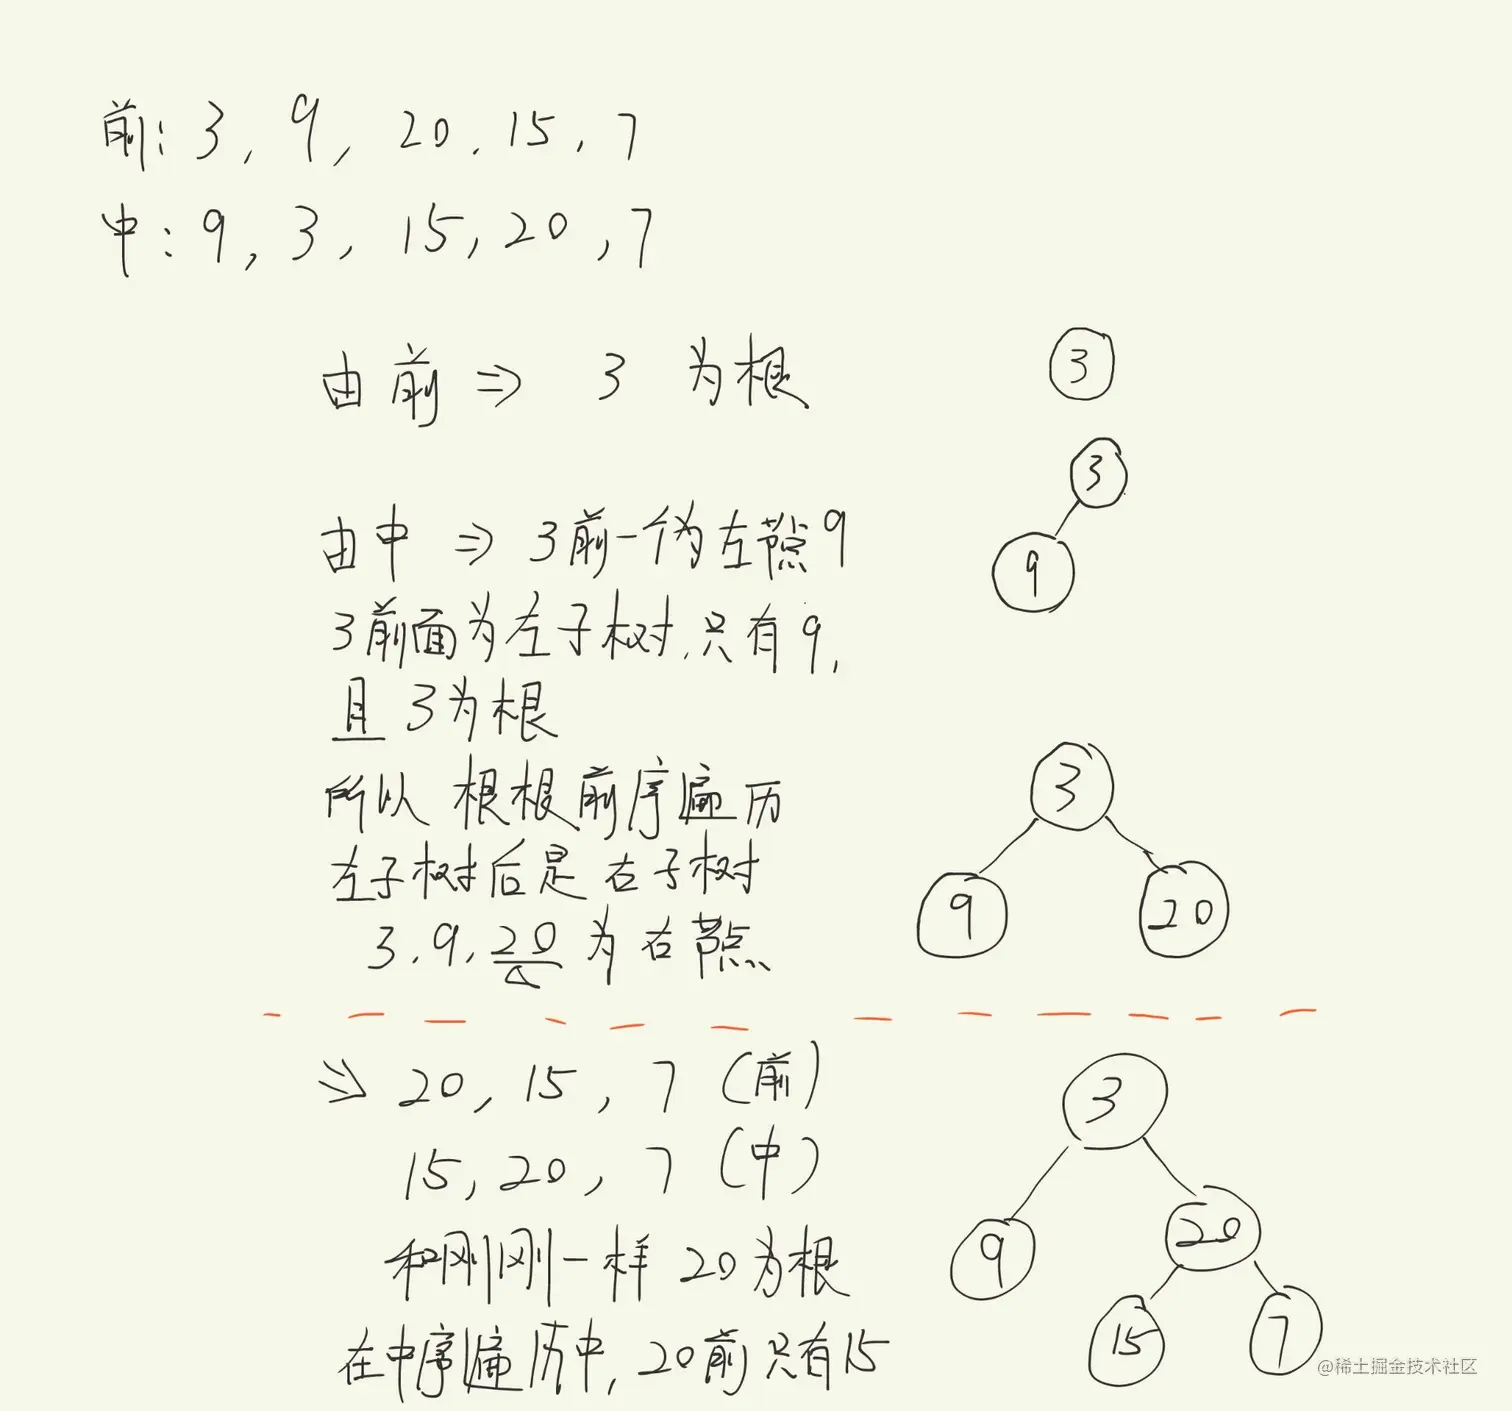 前: 3, 9, 20, 15, 7
中: 9, 3, 15, 20, 7
由前 ⇒ 3 为根
3
由中 ⇒ 3前一个为左节点9
3
9
3前面为左子树,只有9,
且 3为根
所以 根根前序遍历
左子树后是 右子树
3, 9, 20 为右节点
3
9 20
⇒ 20, 15, 7 (前)
15, 20, 7 (中)
和刚刚一样 20为根
在中序遍历中, 20前只有15
3
9 20
15 7
@稀土掘金技术社区